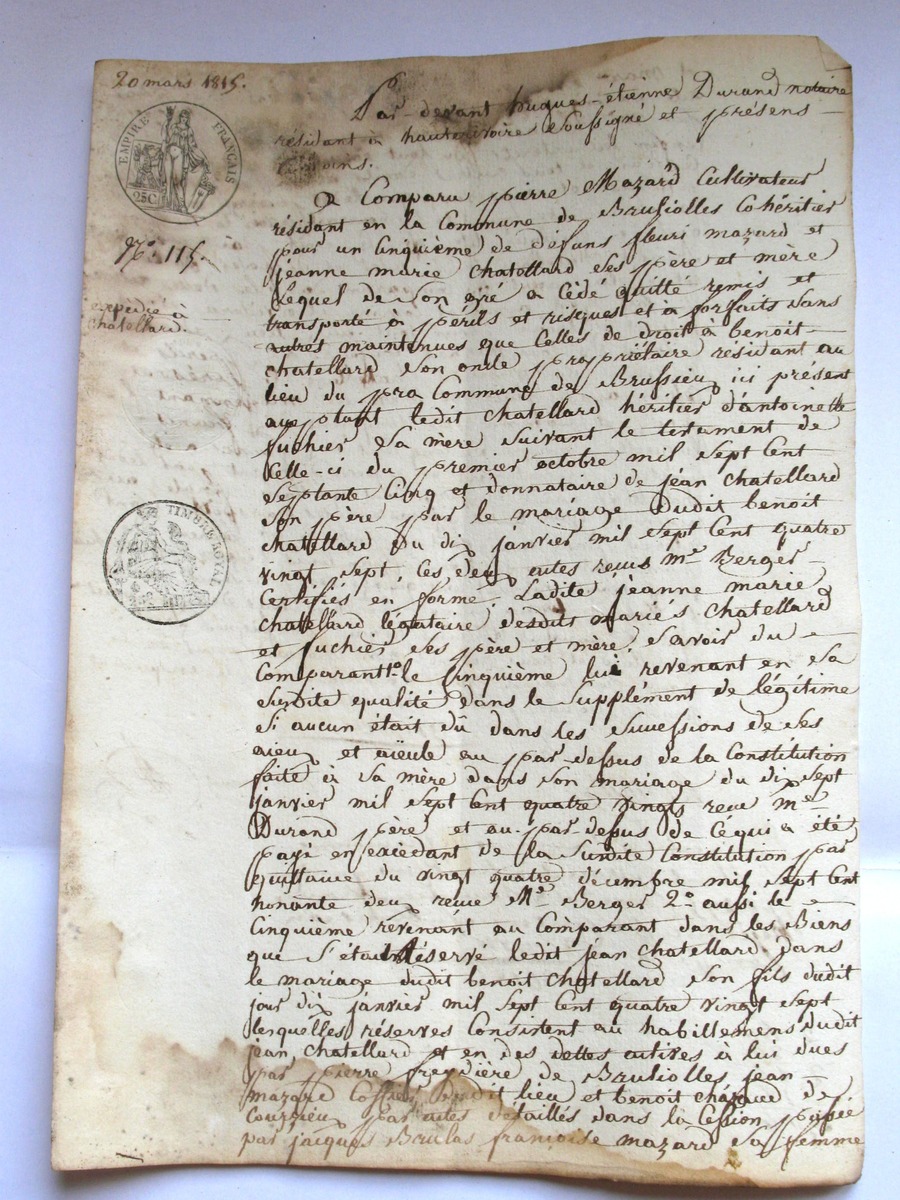 20 mars 1815.
EMPIRE FRANÇAIS
25C
N.° 115.
expedié à
chatellard.
TIMBRE ROYAL
Par-devant hugues-étienne Durand notaire
résidant à hauterivoire soussigné et présens
témoins.
A Comparu pierre Mazard Cultivateur
résidant en la Commune de Brusiolles Cohéritier
pour un Cinquième de défuns fleuri mazard et
jeanne marie Chatollard ses père et mère
Lequel de son gré a Cédé quitté remis et
transporté à périls et risques et à forfaits sans
autres maintenues que Celles de droit à benoit
chatellard son oncle propriétaire résidant au
lieu du pra Commune de Brussieu, ici présent
aceptant ledit Chatellard héritier d'antoinette
fuchier sa mère suivant le testament de
Celle-ci du premier octobre mil sept Cent
septante Cinq et donnataire de jean Chatellard
son père par le mariage dudit benoit
chatellard du dix janvier mil sept Cent quatre
vingt sept, Ces deux actes recus m.e Berger
Certifiés en forme, Ladite jeanne marie
chatellard légataire desdits mariés Chatellard
et fuchier ses père et mère, savoir du
Comparant 1.° le Cinquième lui revenant en sa
susdite qualité dans le supplément de légitime
Si aucun était dû dans les successions de ses
aïeu et aïeule au par dessus de la Constitution
faite à sa mère dans son mariage du dix sept
janvier mil sept Cent quatre vingts recu m.e
Durand père et au-par-dessus de Céqui a été
payé en excédant de la susdite Constitution par
quittance du vingt quatre décembre mil sept Cent
nonante deux recue M.e Berger 2.° aussi le
Cinquième revenant au Comparant dans les Biens
que s'était Réservé ledit jean Chatellard dans
le mariage dudit benoit Chatellard son fils dudit
jour dix janvier mil sept Cent quatre vingt sept
lesquelles réserves Consistent au habillemens dudit
jean Chatellard et en des dettes actives à lui dues
par pierre freydière de Brulliolles jean
mazard dudit lieu et benoit de
Courzieu, par actes détaillés dans la Cession passée
par jacques Brulas françoise mazard sa femme